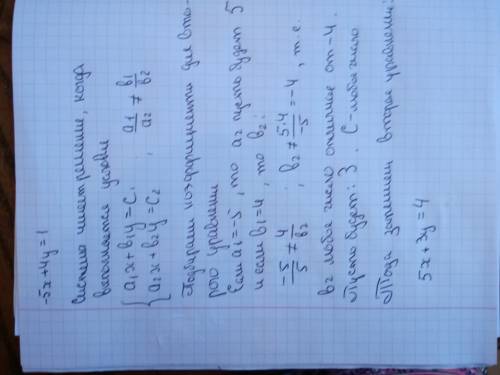 -5x+4y=1
Система имеет решение, когда
выполняется условие
{ a₁x+b₁y=c₁ , a₁/a₂ ≠ b₁/b₂
{ a₂x+b₂y=c₂
Подбираем коэффициенты для вто-
рого уравнения
Если a₁=-5, то a₂ пусть будет 5
и если b₁=4, то b₂:
-5/5 ≠ 4/b₂ , b₂ ≠ 5·4/-5 = -4, т.е.
b₂ любое число отличное от -4.
Пусть будет: 3. C-любое число
Тогда запишем второе уравнение:
5x+3y=4